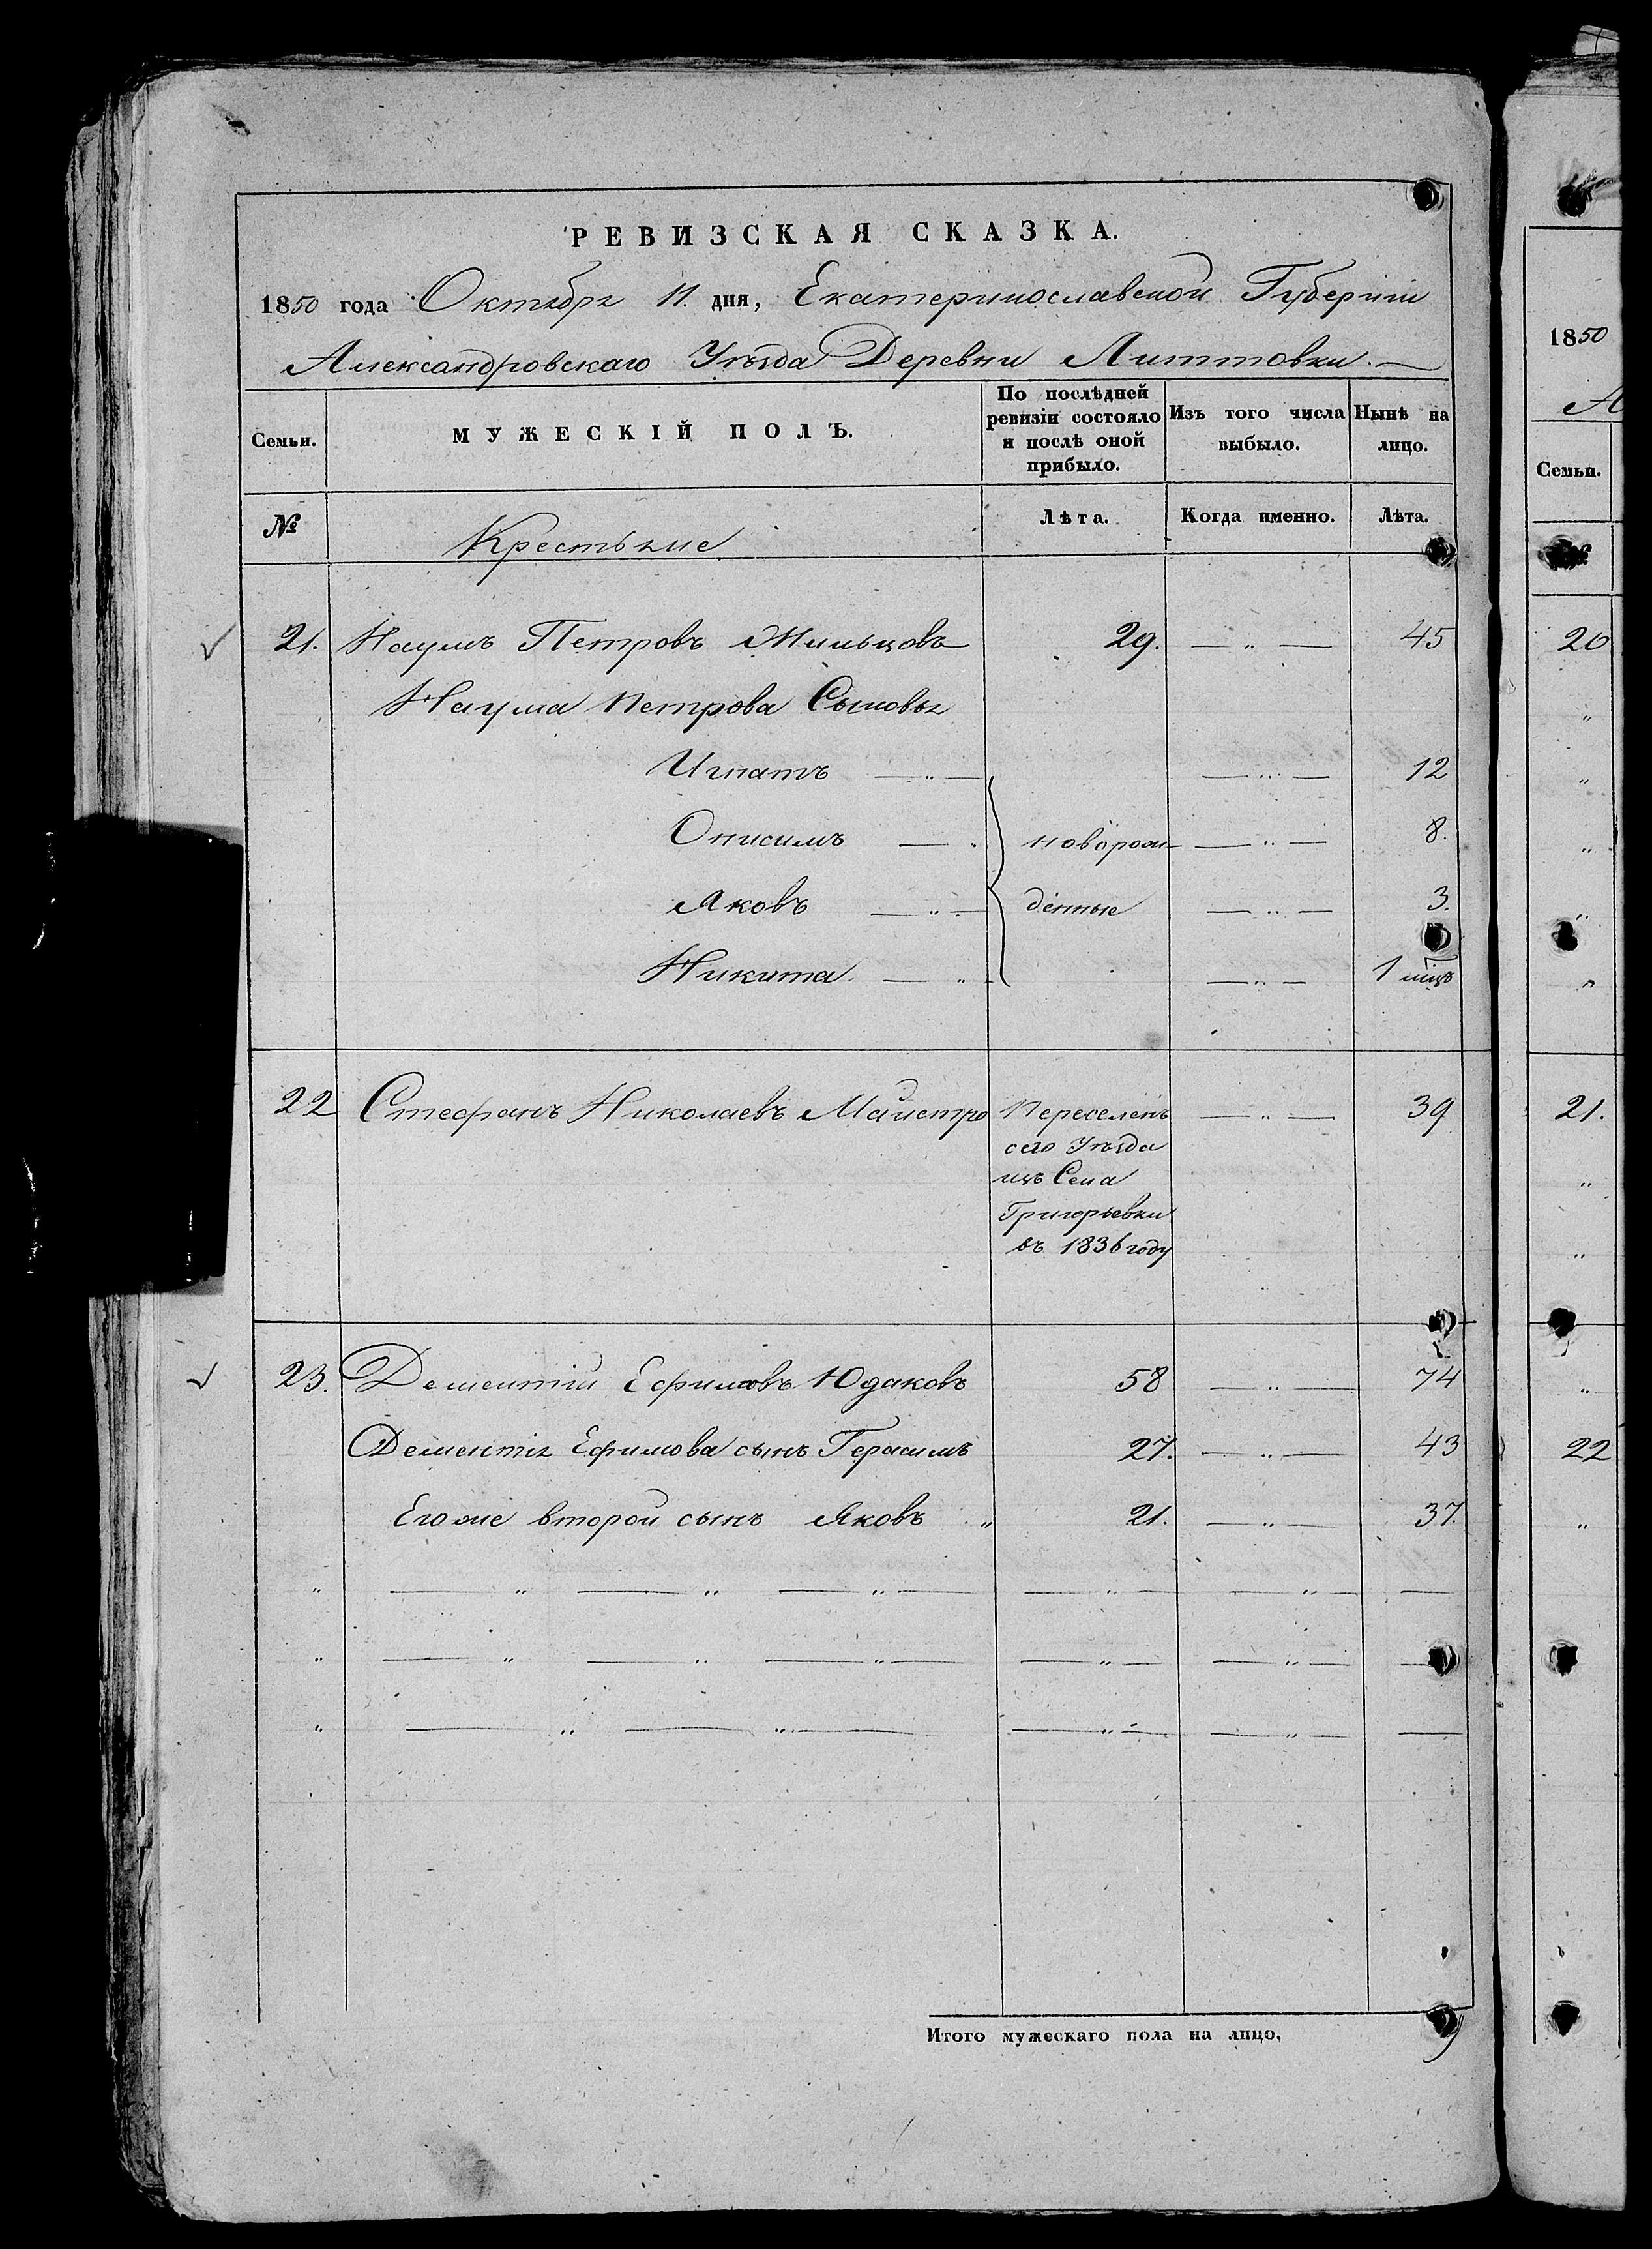 РЕВИЗСКАЯ СКАЗКА.
1850 года Октября 11. дня, Екатеринославской Губерніи
Александровскаго Уѣзда Деревни Литтовки. —
Семьи. МУЖЕСКІЙ ПОЛЪ. По послѣдней ревизіи состояло и послѣ оной прибыло. Изъ того числа выбыло. Нынѣ на лицо.
№ Крестьяне Лѣта. Когда именно. Лѣта.
21. Наумъ Петровъ Мильцовъ 29. — " — 45
Наума Петрова Сыновья
Игнатъ — " — — " — 12
Онисимъ — " новорож- — " — 8.
Яковъ — " — денные — " — 3.
Никита — " — — " — 1 мцъ
22 Стефанъ Николаевъ Магистро Переселенъ — " — 39
сего Уѣзда
изъ Села
Григорьевки
въ 1836 году
23. Дементій Ефимовъ Юдаковъ 58 — " — 74
Дементія Ефимова сынъ Герасимъ 27. — " — 43
Его же второй сынъ Яковъ " 21. — " — 37.
" — " — " — " — — " — — " — —
" — " — " — " — — " — — " — —
" — " — " — — " — — " — —
Итого мужескаго пола на лицо,
1850
А
Семьи.
№
20
"
"
"
"
"
21.
"
"
"
22
"